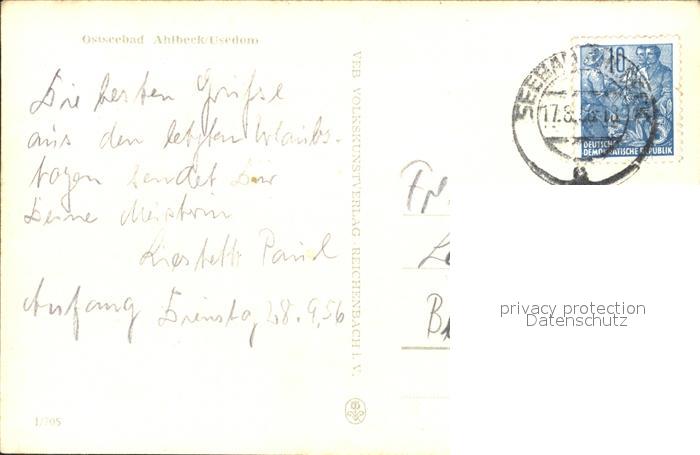 Ostseebad Ahlbeck/Usedom
Die besten Grüße
aus den letzten Urlaubs-
tagen sendet Dir
Deine Meisterin
Paul
Anfang Dienstag 28.9.56
1/705
VEB VOLKSKUNSTVERLAG · REICHENBACH i. V.
SEEBAD
17.8.56-18
10
DEUTSCHE
DEMOKRATISCHE REPUBLIK
a
Fr
B
privacy protection
Datenschutz